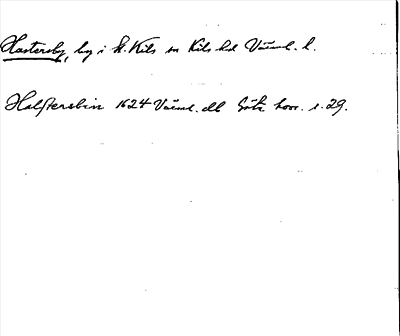 Hastersby, by i St. Kils sn Kils hd Värml. l.
Halstersbin 1624 Värml. dl Götl. horr. s. 29.